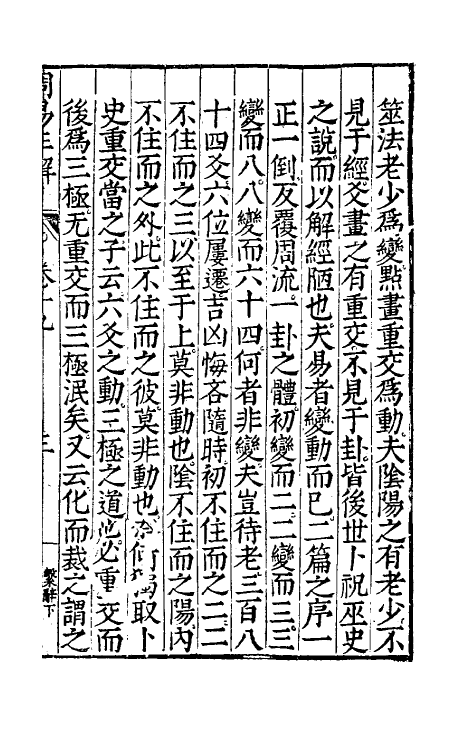 筮法老少爲變點畫重交爲動夫陰陽之有老少不
見于經爻畫之有重交不見于卦皆後世卜祝巫史
之說而以解經陋也夫易者變動而已二篇之序一
正一倒反覆周流一卦之體初變而二二變而三三
變而八八變而六十四何者非變夫豈待老三百八
十四爻六位屢遷吉凶悔吝隨時初不住而之二二
不住而之三以至于上莫非動也陰不住而之陽内
不住而之外此不住而之彼莫非動也取卜
史重交當之子云六爻之動三極之道也必重交而
後爲三極无重交而三極泯矣又云化而裁之謂之
周易正解
卷十九
三
繫辭下